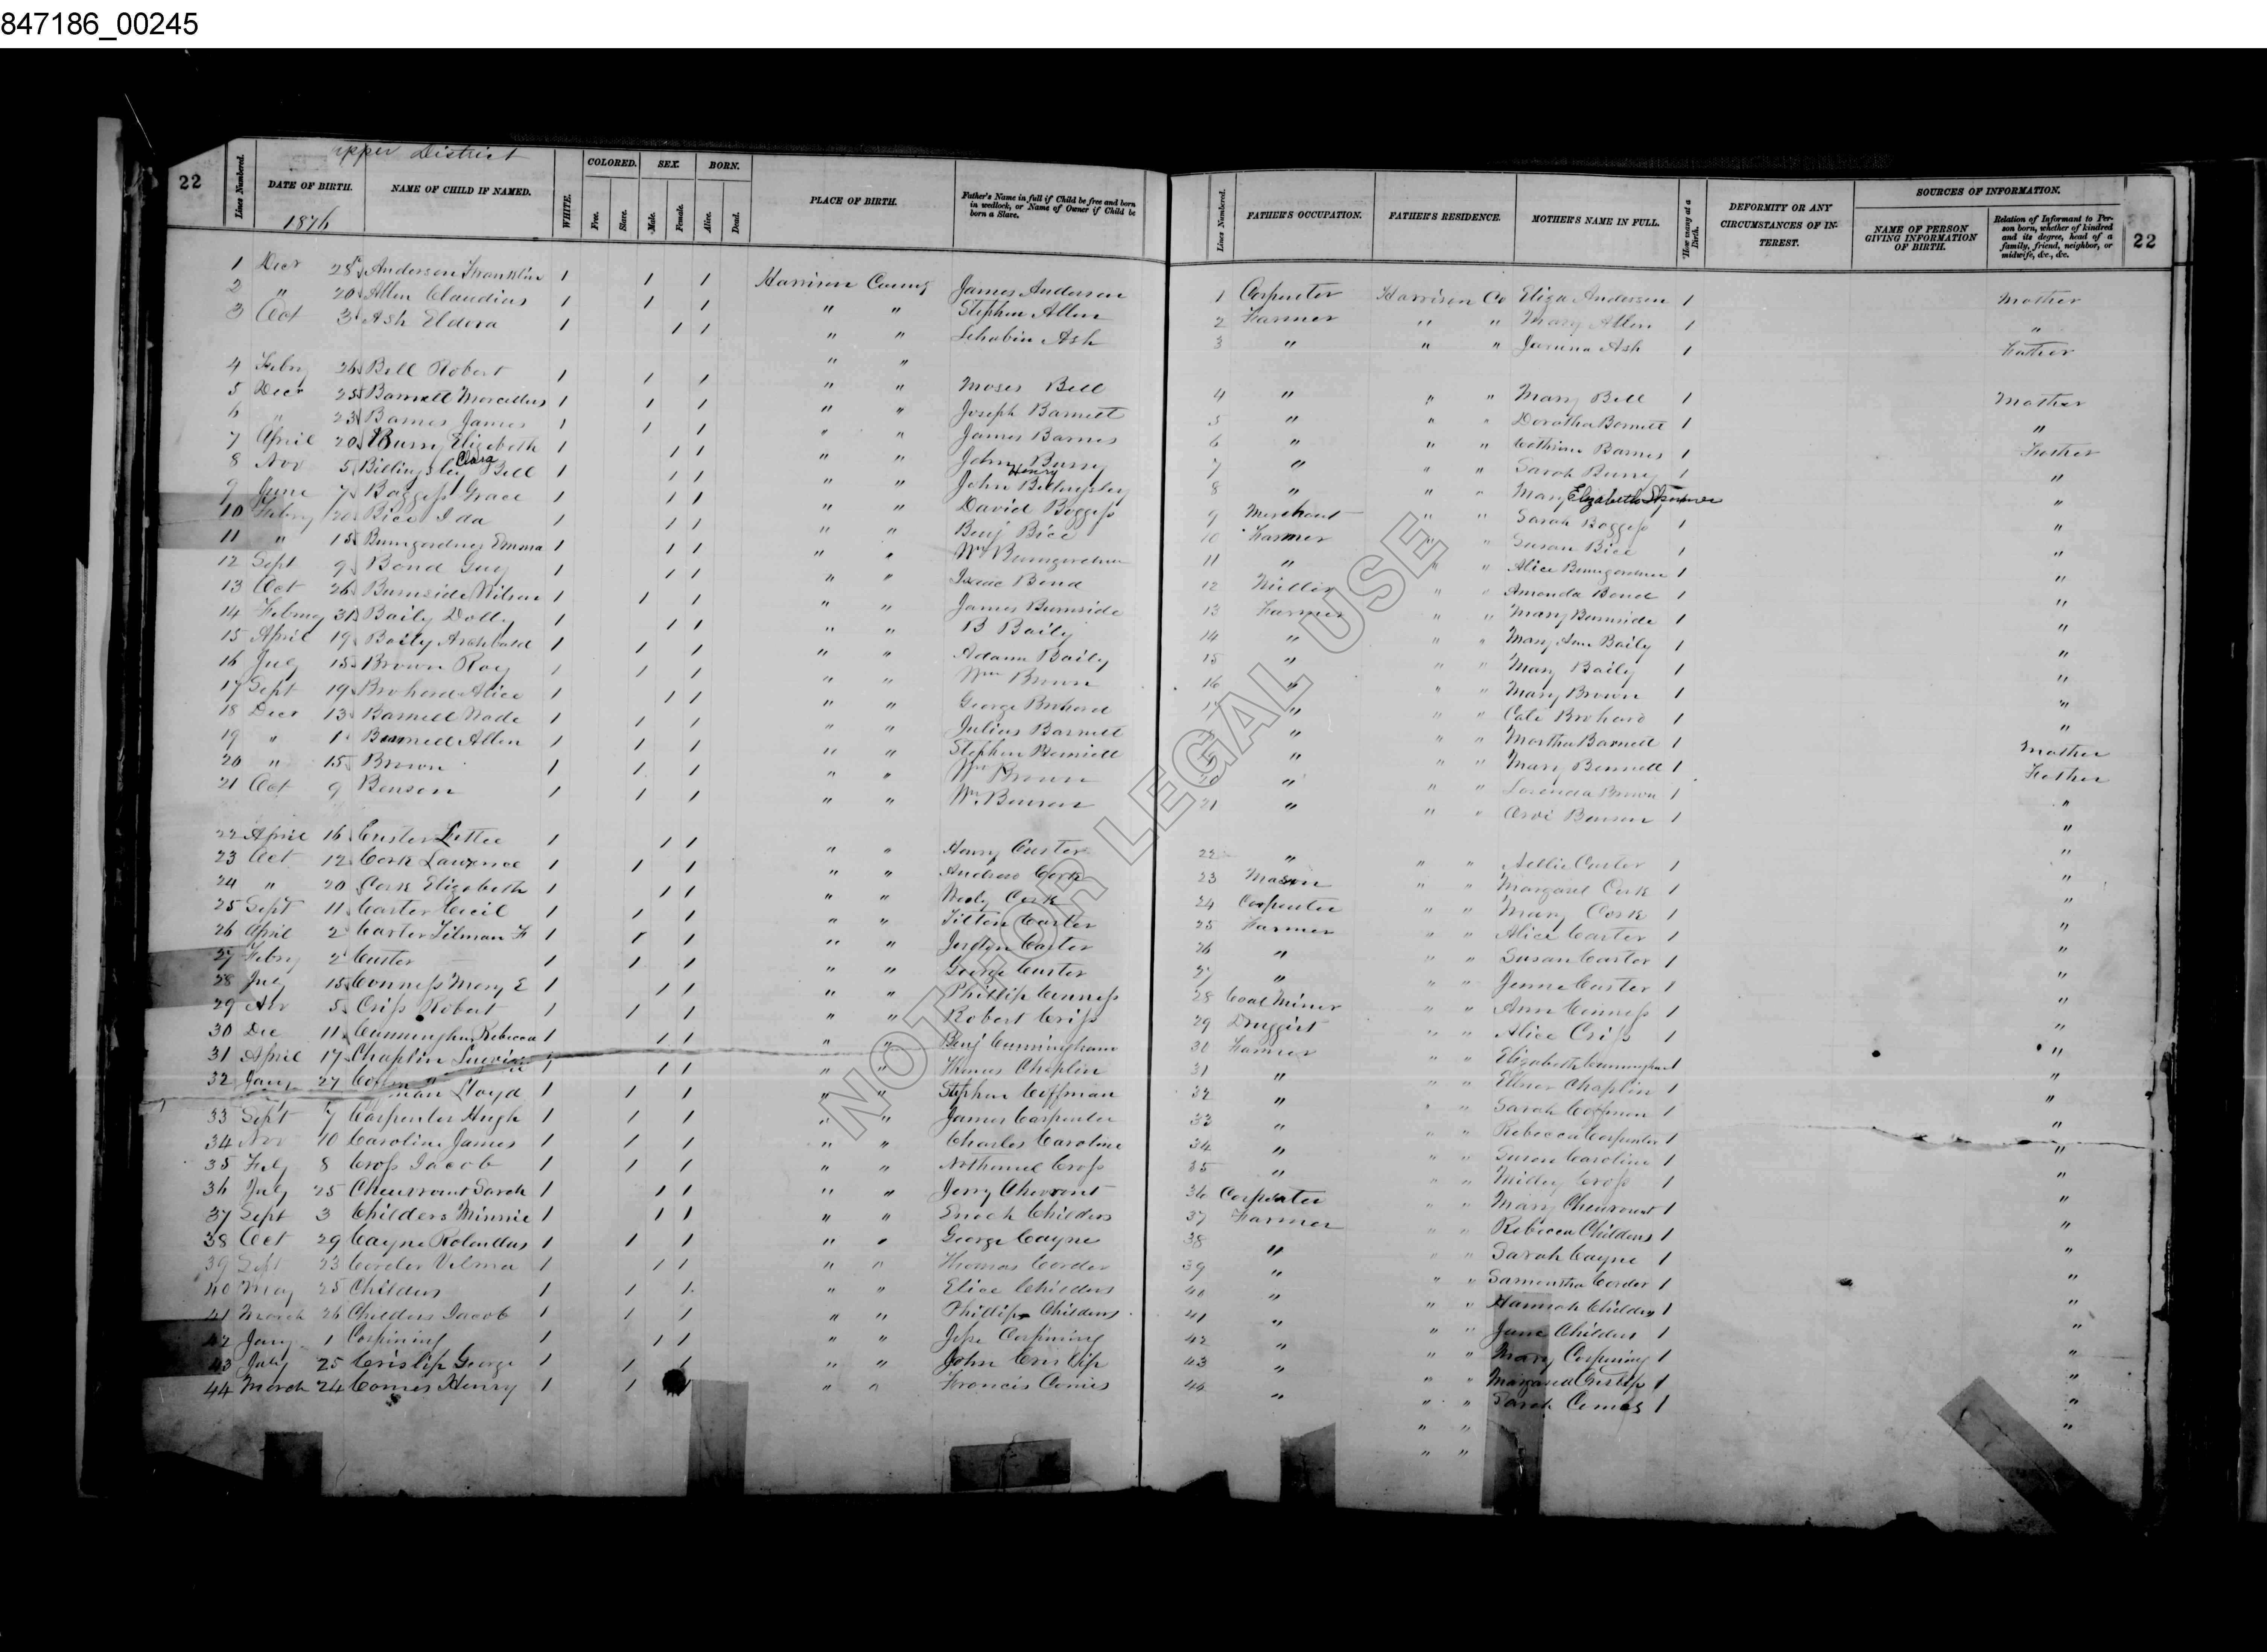 847186_00245
Upper District
22 Lines Numbered. DATE OF BIRTH. NAME OF CHILD IF NAMED. WHITE. COLORED. Free. Slave. SEX. Male. Female. BORN. Alive. Dead. PLACE OF BIRTH. Father's Name in full if Child be free and born in wedlock, or Name of Owner if Child be born a Slave. Lines Numbered. FATHER'S OCCUPATION. FATHER'S RESIDENCE. MOTHER'S NAME IN FULL. How many at a Birth. DEFORMITY OR ANY CIRCUMSTANCES OF INTEREST. SOURCES OF INFORMATION. NAME OF PERSON GIVING INFORMATION OF BIRTH. Relation of Informant to Person born, whether of kindred and its degree, head of a family, friend, neighbor, or midwife, &c., &c. 22
1876
1 Decr 28 Anderson Franklin 1 1 1 Harrison County James Anderson 1 Carpenter Harrison Co Eliza Anderson 1 Mother
2 " 20 Allen Claudius 1 1 1 " " Stephen Allen 2 Farmer " " Mary Allen 1 "
3 Oct 3 Ash Eldora 1 1 1 " " Ash 3 " " " Ash 1 Father
4 Febry 26 Bell Robert 1 1 1 " " Moses Bell 4 " " " Mary Bell 1 Mother
5 Decr 25 Barnett Marcellus 1 1 1 " " Joseph Barnett 5 " " " Doratha Barnett 1 "
6 " 23 Barnes James 1 1 1 " " James Barnes 6 " " " Barnes 1 Father
7 April 20 Burry Elizabeth 1 1 1 " " John Burry 7 " " " Sarah Burry 1 "
8 Nov 5 Billingsley Clara Bell 1 1 1 " " John Henry Billingsley 8 " " " Mary Elizabeth "
9 June 7 Boggess Grace 1 1 1 " " David Boggess 9 Merchant " " Sarah Boggess 1 "
10 Febry 20 Bice Ida 1 1 1 " " Benj Bice 10 Farmer " " Susan Bice 1 "
11 " 15 Bumgardner Emma 1 1 1 " " Wm Bumgardner 11 " " " Alice Bumgardner 1 "
12 Sept 9 Bond Guy 1 1 1 " " Isaac Bond 12 Miller " " Amanda Bond 1 "
13 Oct 26 Burnside Wilson 1 1 1 " " James Burnside 13 Farmer " " Mary Burnside 1 "
14 Febury 31 Baily Dolly 1 1 1 " " B Baily 14 " " " Mary Ann Baily 1 "
15 April 19 Baily Archibald 1 1 1 " " Adam Baily 15 " " " Mary Baily 1 "
16 July 15 Brown Roy 1 1 1 " " Wm Brown 16 " " " Mary Brown 1 "
17 Sept 19 Brohard Alice 1 1 1 " " George Brohard 17 " " " Brohard 1 "
18 Decr 13 Barnett Wade 1 1 1 " " Julius Barnett " " " Martha Barnett 1 Mother
19 " 1 Allen 1 1 1 " " Stephen " " " Mary 1 Father
20 " 15 Brown 1 1 1 " " Wm Brown 20 " " " Brown 1 "
21 Oct 9 Benson 1 1 1 " " Wm Benson 21 " " " Benson 1 "
22 April 16 Custer Lettie 1 1 1 " " Henry Custer 22 " " " Custer 1 "
23 Oct 12 Cork Lawrence 1 1 1 " " Andrew Cork 23 Mason " " Margaret Cork 1 "
24 " 20 Cork Elizabeth 1 1 1 " " Cork 24 Carpenter " " Mary Cork 1 "
25 Sept 11 Carter Cecil 1 1 1 " " Carter 25 Farmer " " Alice Carter 1 "
26 April 2 Carter Tilman F 1 1 1 " " Carter 26 " " " Susan Carter 1 "
27 Febry 2 Custer 1 1 1 " " George Custer 27 " " " Jenne Custer 1 "
28 July 15 Conness Mary E 1 1 1 " " Phillip Conness 28 Coal Miner " " Ann Conness 1 "
29 Nov 5 Criss Robert 1 1 1 " " Robert Criss 29 Druggist " " Alice Criss 1 "
30 Dec 11 Cunningham Rebecca 1 1 1 " " Benj Cunningham 30 Farmer " " Elizabeth Cunningham 1 "
31 April 17 Chaplin 1 1 1 " " Thomas Chaplin 31 " " " Ellner Chaplin 1 "
32 Jany 27 Lloyd 1 1 1 " " Stephen Coffman 32 " " " Sarah Coffman 1 "
33 Sept 7 Carpenter Hugh 1 1 1 " " James Carpenter 33 " " " Rebecca Carpenter 1 "
34 Nov 10 Caroline James 1 1 1 " " Charles Caroline 34 " " " Susan Caroline 1 "
35 8 Cross Jacob 1 1 1 " " Nathaniel Cross 35 " " " Milley Cross 1 "
36 July 25 Cheuvront Sarah 1 1 1 " " Jerry Cheuvront 36 Carpenter " " Mary Cheuvront 1 "
37 Sept 3 Childers Minnie 1 1 1 " " Enoch Childers 37 Farmer " " Rebecca Childers 1 "
38 Oct 29 Cayne Rolandus 1 1 1 " " George Cayne 38 " " " Sarah Cayne 1 "
39 Sept 23 Corder Velma 1 1 1 " " Thomas Corder 39 " " " Samantha Corder 1 "
40 May 25 Childers 1 1 1 " " Childers 40 " " " Hannah Childers 1 "
41 March 26 Childers Jacob 1 1 1 " " Phillip Childers 41 " " " Jane Childers 1 "
42 Jany 1 Corpining 1 1 1 " " Jesse Corpining 42 " " " Mary Corpining 1 "
43 July 25 Crislip George 1 1 1 " " John Crislip 43 " " " Margaret Crislip 1 "
44 March 24 Comes Henry 1 1 1 " " Francis Comes 44 " " " Sarah Comes 1 "
NOT FOR LEGAL USE